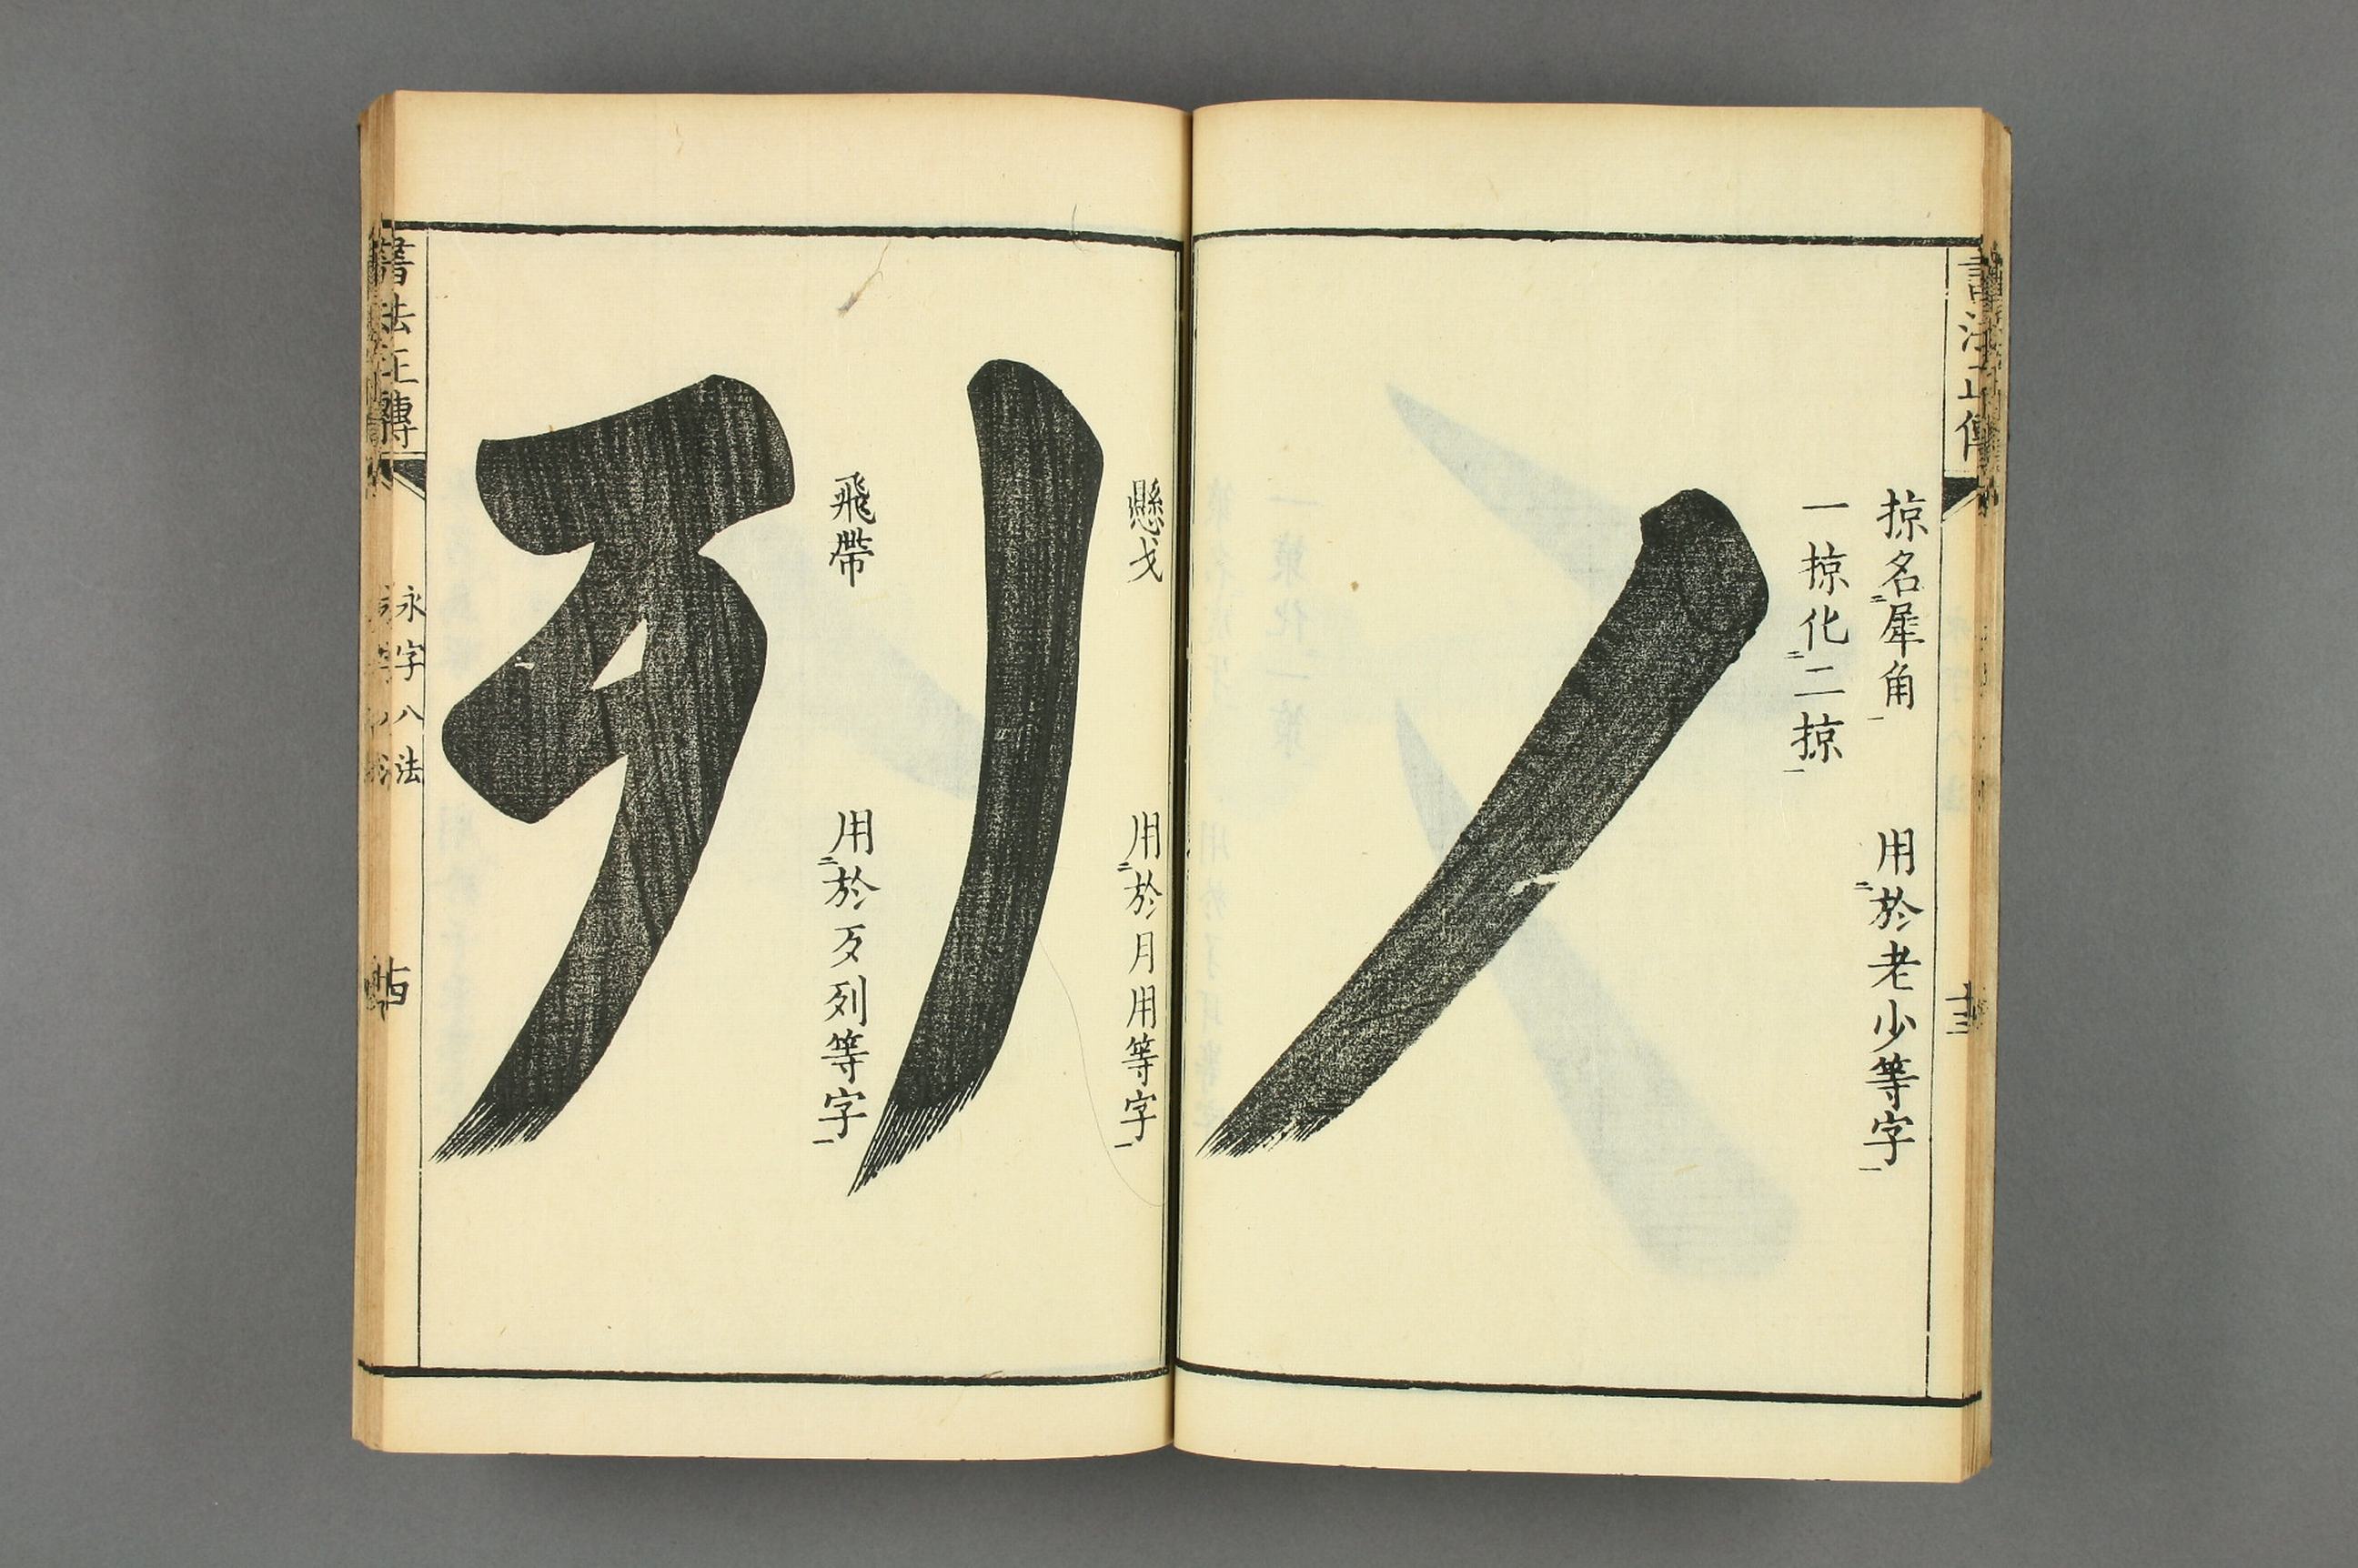 掠名犀角
用於老少等字
一掠化二掠
懸戈
用於月用等字
飛帶
用於歹列等字
書法正傳
永字八法